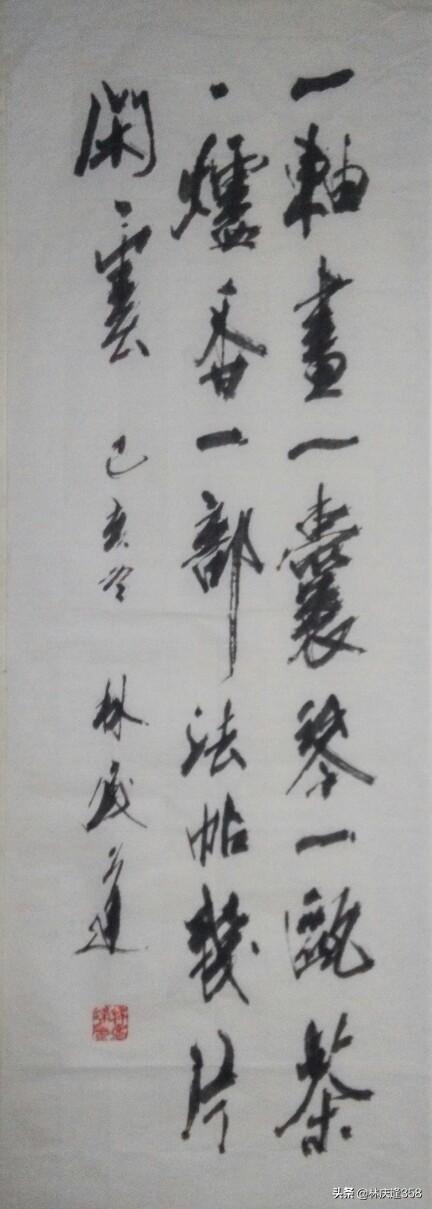 一軸畫一囊琴一甌茶
一爐香一部法帖幾片
閑雲 己亥冬 林
头条 @林庆隆358